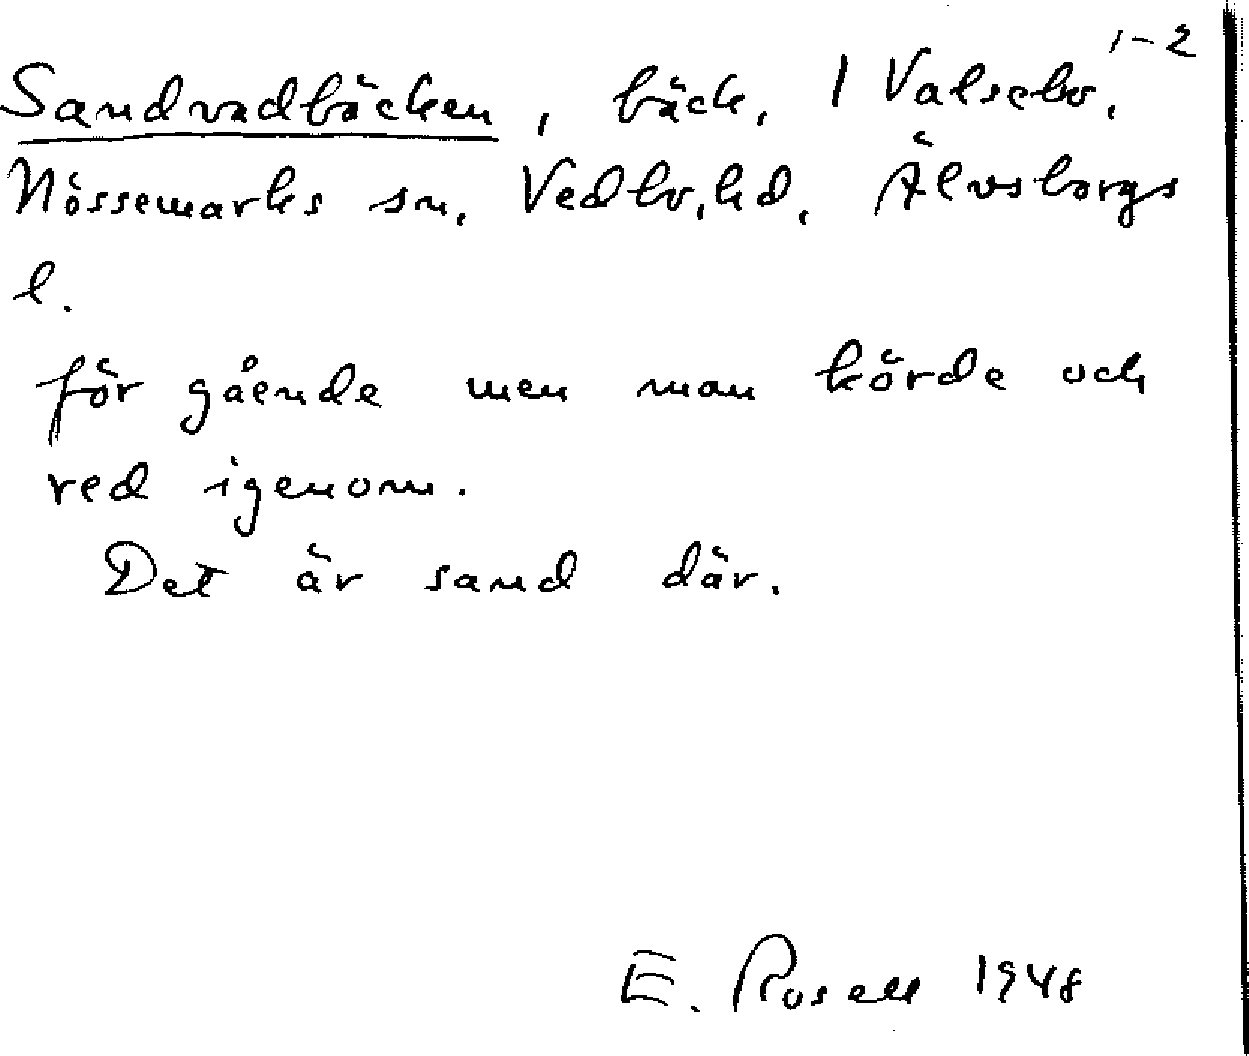 Sandvadbäcken, bäck, 1 Valsebo,¹⁻²
Nössemarks sn, Vedbo, hd, Älvsborgs
l.
för gående men man körde och
red igenom.
Det är sand där.
E. Rosell 1948